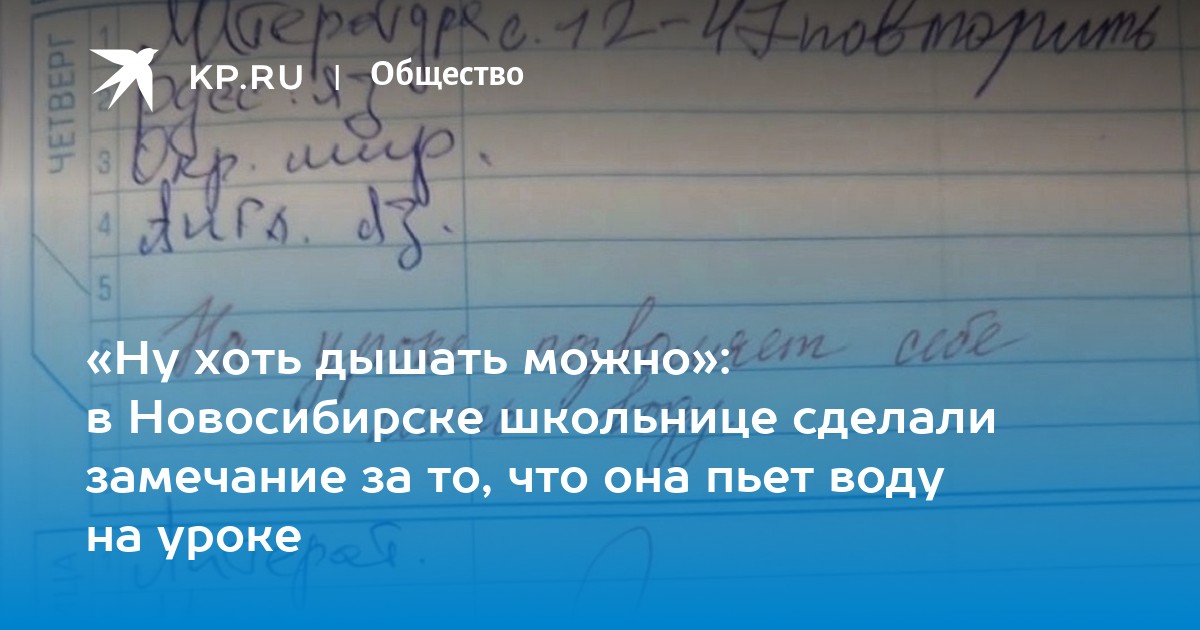 ЧЕТВЕРГ
1 Литература с. 12-47 повторить
KP.RU | Общество
2 Русс. яз
3 Окр. мир.
4 Англ. яз.
5
6 На уроке позволяет себе
пить воду
«Ну хоть дышать можно»:
в Новосибирске школьнице сделали
замечание за то, что она пьет воду
на уроке
Литерат.